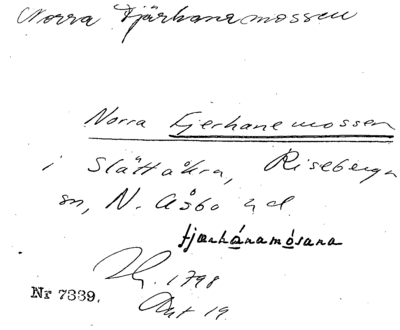 Norra Tjärhanemossen
Norra Tjerhanemossen
i Slättåkra, Riseberga
sn, N. Åsbo hd.
tjærhánamósana
1798
Akt 19.
Nr 7339.